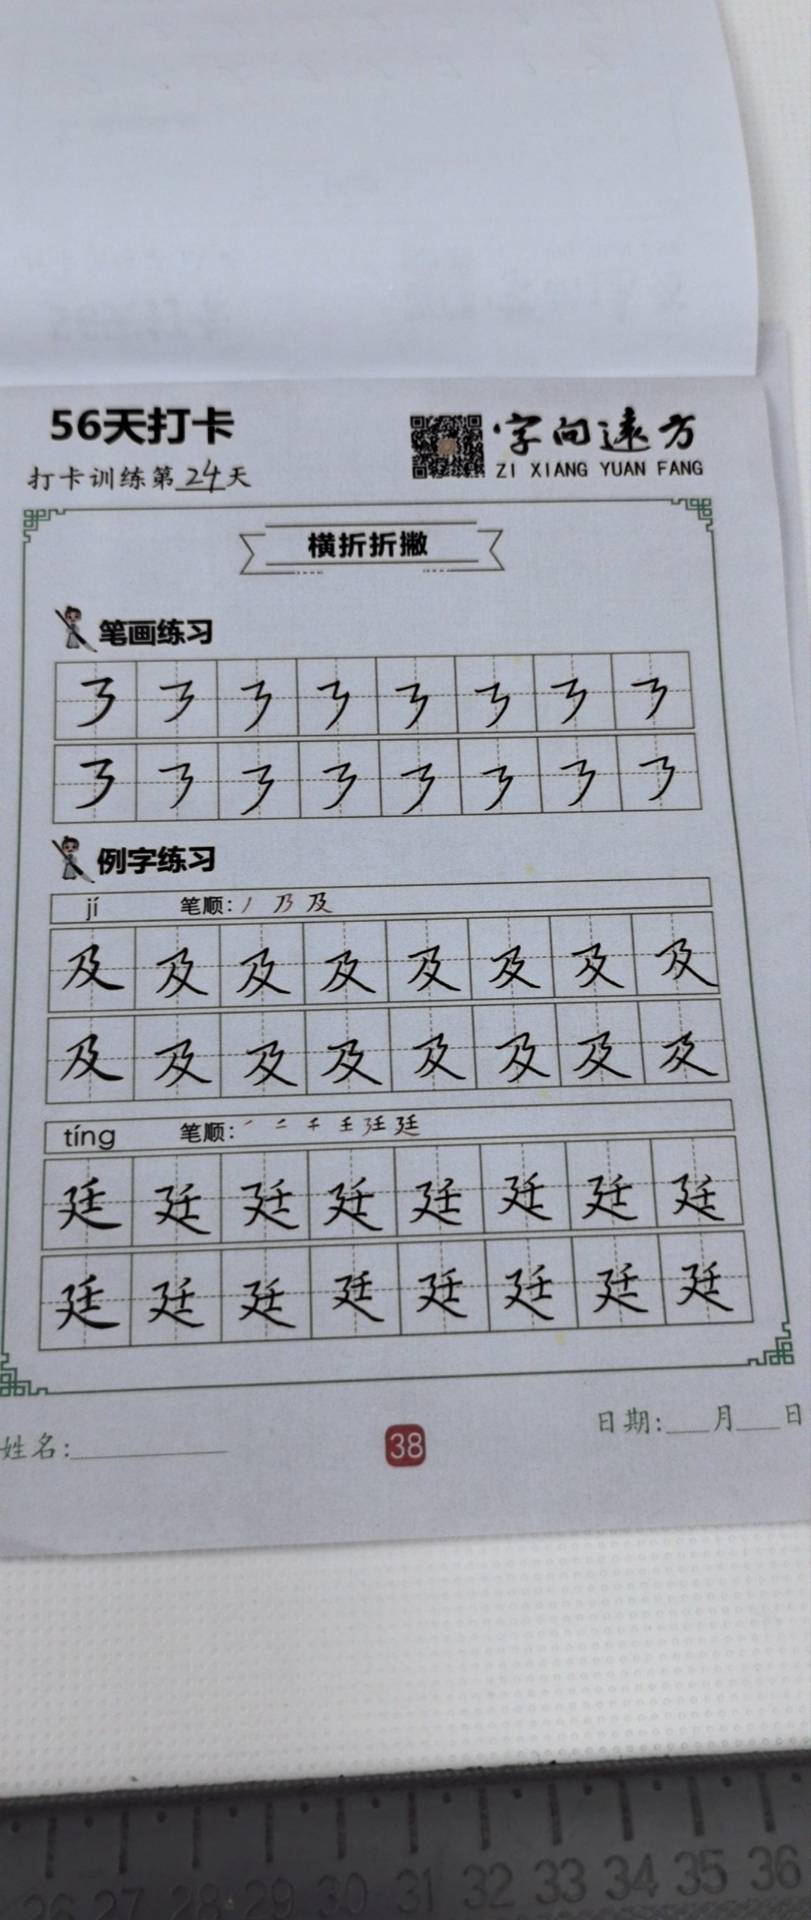 56天打卡
字向远方
ZI XIANG YUAN FANG
打卡训练第24天
横折折撇
笔画练习
㇋ ㇋ ㇋ ㇋ ㇋ ㇋ ㇋ ㇋
㇋ ㇋ ㇋ ㇋ ㇋ ㇋ ㇋ ㇋
例字练习
jí 笔顺: 丿 乃 及
及 及 及 及 及 及 及 及
及 及 及 及 及 及 及 及
tíng 笔顺:
廷 廷 廷 廷 廷 廷 廷 廷
廷 廷 廷 廷 廷 廷 廷 廷
姓名:
38
日期:___月___日
26 27 28 29 30 31 32 33 34 35 36